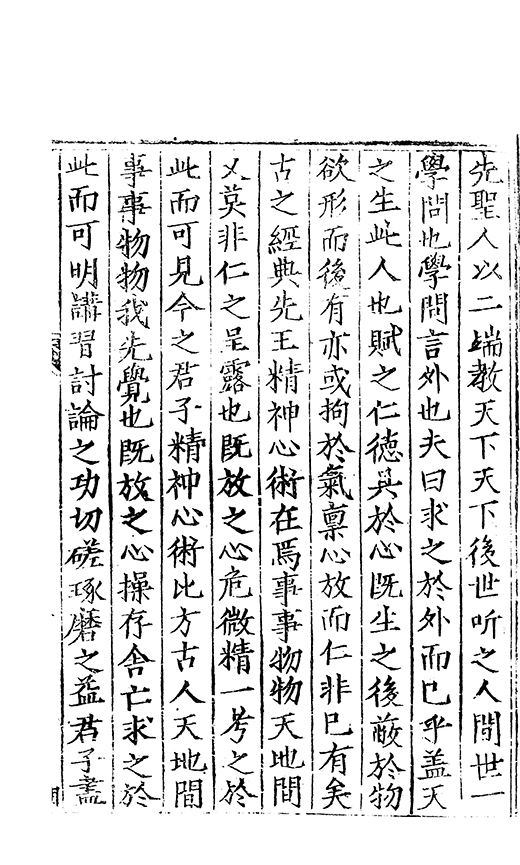 先聖人以二端教天下天下後世听之人間世一
學問也學問言外也夫曰求之於外而已乎盖天
之生此人也賦之仁德具於心既生之後蔽於物
欲形而後有亦或拘於氣禀心放而仁非已有矣
古之經典先王精神心術在焉事事物物天地間
又莫非仁之呈露也既放之心危微精一考之於
此而可見今之君子精神心術比方古人天地間
事事物物我先覺也既放之心操存舎亡求之於
此而可明講習討論之功切磋琢磨之益君子盡